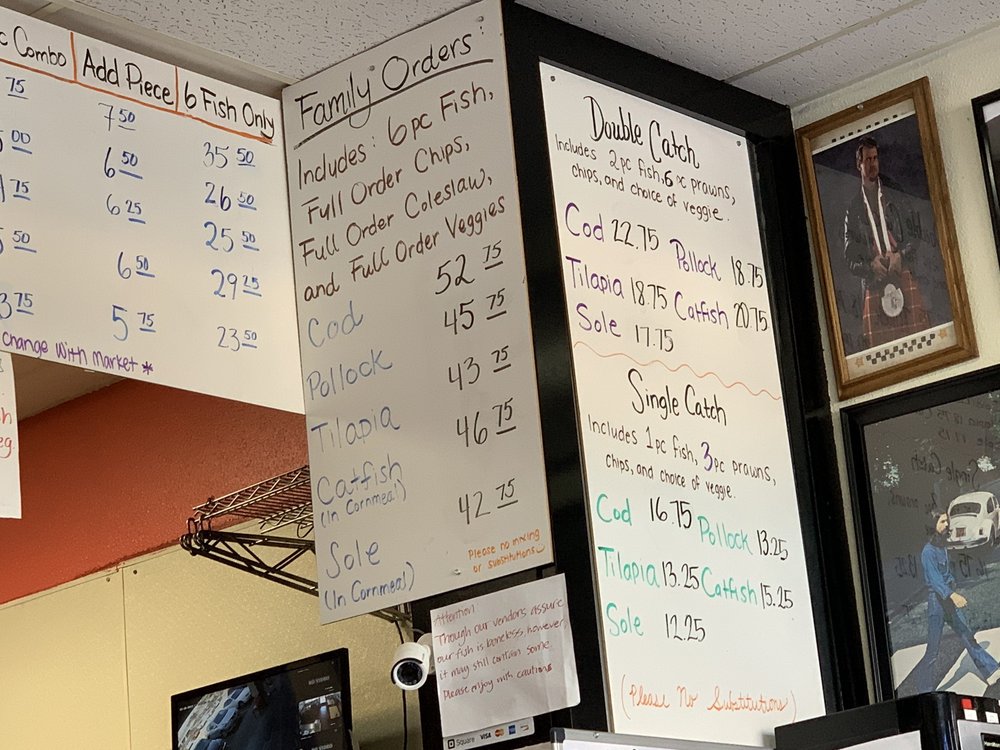 Combo
Add Piece
6 Fish Only
75
7 50
35 50
00
6 50
26 50
75
6 25
25 50
50
6 50
29 25
75
5 75
23 50
Change With Market *
Family Orders:
Includes: 6 pc Fish,
Full Order Chips,
Full Order Coleslaw,
and Full Order Veggies
Cod 52 75
Pollock 45 75
Tilapia 43 75
Catfish 46 75
(In Cornmeal)
Sole 42 75
(In Cornmeal)
Please no mixing
or substitutions
Double Catch
Includes 2pc fish, 6 pc prawns,
chips, and choice of veggie.
Cod 22.75 Pollock 18.75
Tilapia 18.75 Catfish 20.75
Sole 17.75
Single Catch
Includes 1 pc fish, 3 pc prawns,
chips, and choice of veggie.
Cod 16.75 Pollock 13.25
Tilapia 13.25 Catfish 15.25
Sole 12.25
(Please No Substitutions)
Attention!
Though our vendors assure
our fish is boneless, however,
it may still contain some.
Please enjoy with caution
Square VISA